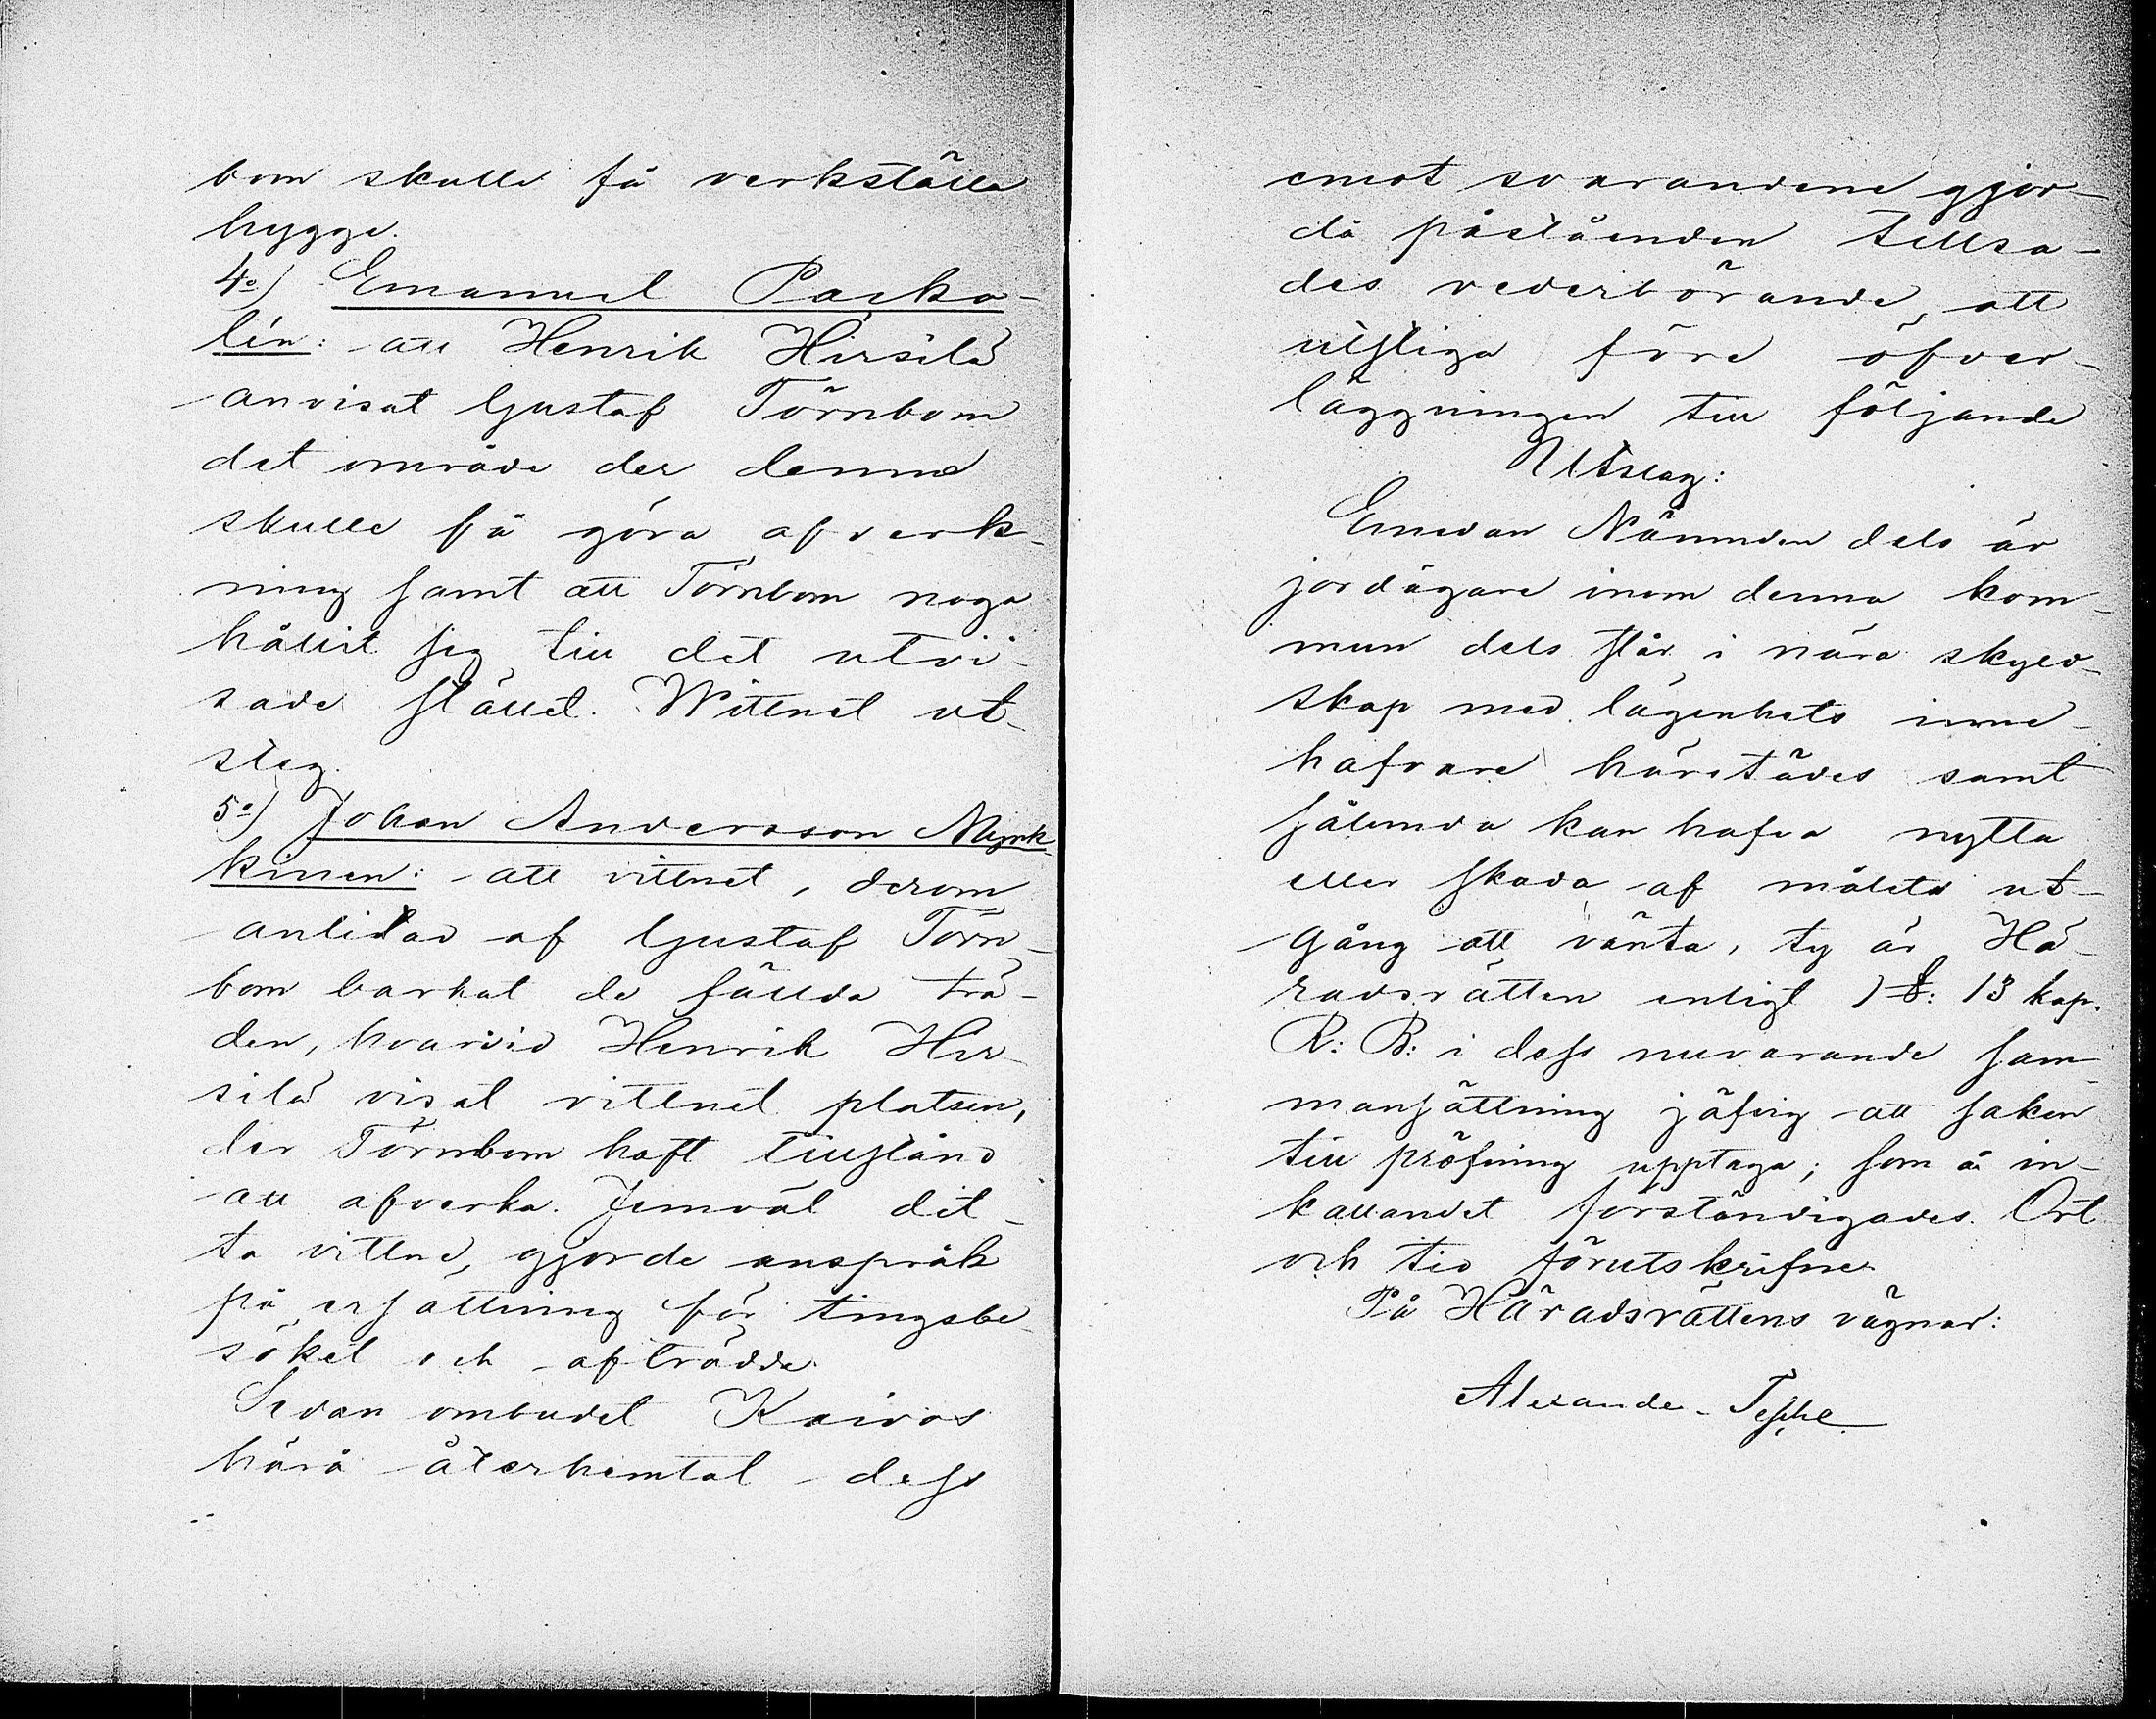 bom skulle få verkställa
hygge.
4o) Emanuel Packa-
lén: att Henrik Hirsilä
anvisat Gustaf Törnbom
det område der denne
skulle få göra afverk-
ning samt att Törnbom noga
hållit sig till det utvi-
sade stället. Wittnet ut-
steg.
5o) Johan Andersson Mynk-
kinen: att vittnet, derom
anlitad af Gustaf Törn-
bom barkat de fällda trä-
den, hvarvid Henrik Hir-
silä visat vittnet platsen,
der Törnbom haft tillstånd
att afverka. Jemväl det-
ta vittne, gjorde anspråk
på ersättning för tingsbe-
söket och afträdde.
Sedan ombudet Koivos
härå återhemtat dess
emot svarandene gjor-
da påståenden tillsa-
des vederbörande, att
utstiga före öfver-
läggningen till följande
Utslag:
Emedan Nämnden dels är
jordägare inom denna kom-
mun dels står i nära skyld-
skap med lägenhets inne-
hafvare härstädes samt
sålunda kan hafva nytta
eller skada af målets ut-
gång att vänta, ty är Hä-
radsrätten enligt 1 §: 13 kap.
R: B: i dess nuvarande sam-
mansättning jäfvig att saken
till pröfning upptaga; som å in-
kallandet förständigades. Ort
och tid förutskrifne.
På Häradsrättens vägnar:
Alexander Tesche